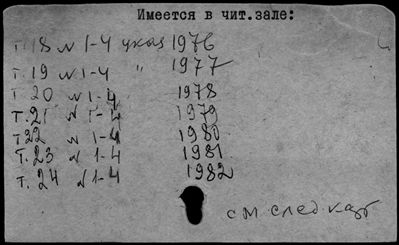 Имеется в чит.зале:
т. 18 N 1-4 указ 1976
т. 19 N 1-4 " 1977
т. 20 N 1-4 1978
т. 21 N 1-4 1979
т. 22 N 1-4 1980
т. 23 N 1-4 1981
т. 24 N 1-4 1982
см. след. карт